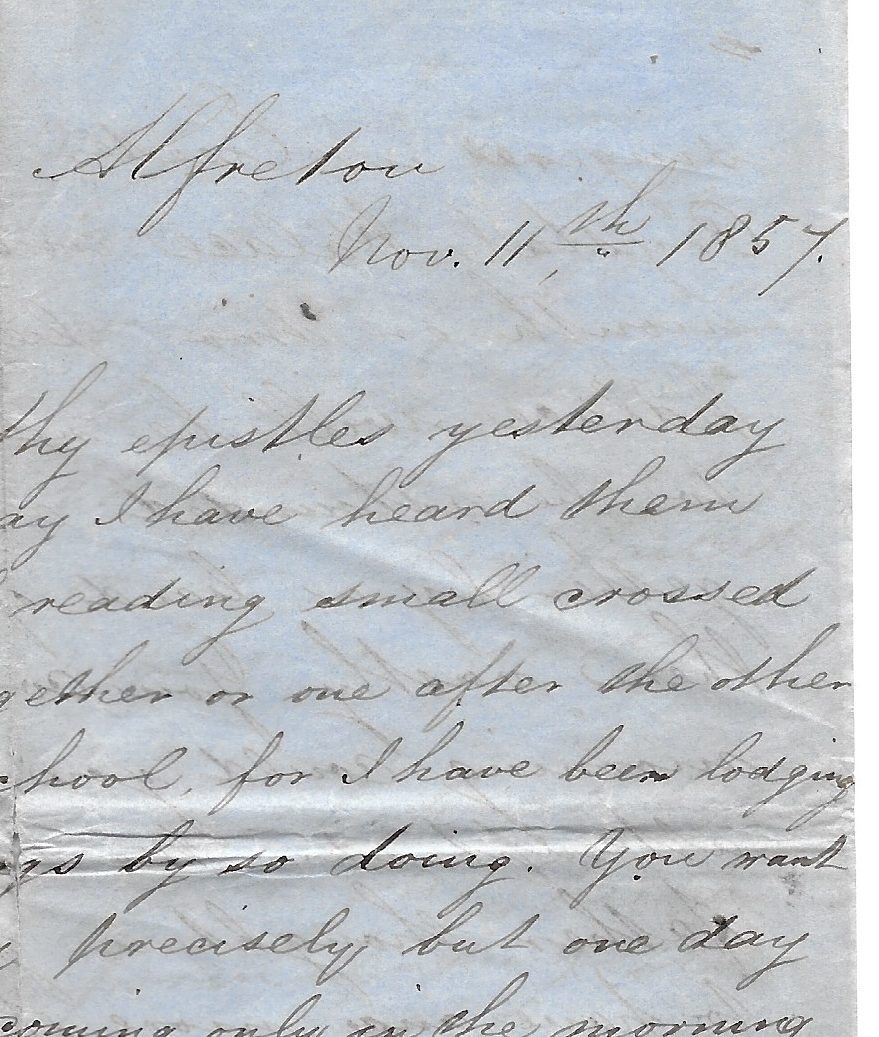 Alfreton
Nov. 11th 1857.
thy epistles yesterday
ay I have heard them
reading small crossed
gether or one after the other
chool, for I have been lodging
gs by so doing. You want
precisely but one day
coming only in the morning